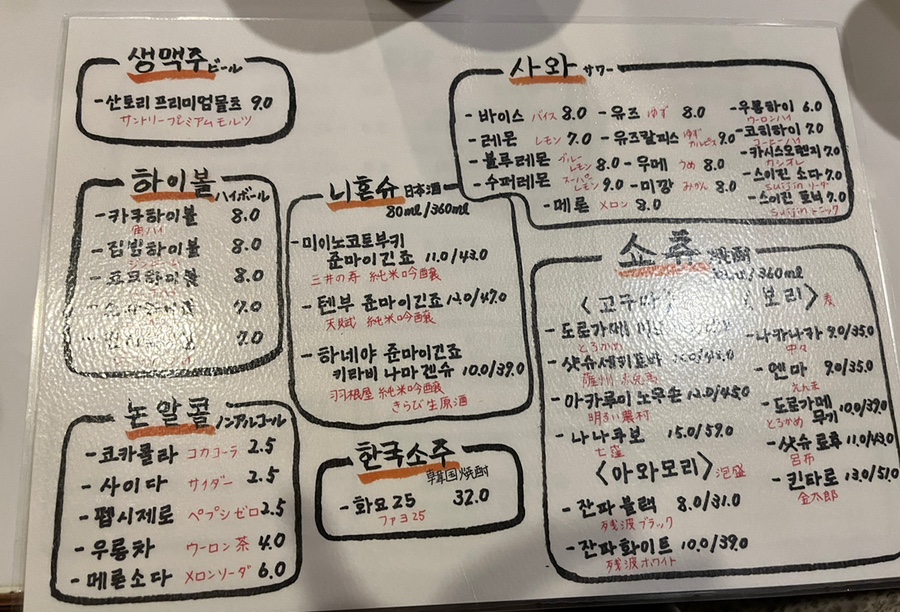 생맥주 ビール
- 산토리 프리미엄몰츠 9.0
サントリープレミアムモルツ
하이볼 ハイボール
- 카쿠하이볼 8.0
角ハイ
- 짐빔하이볼 8.0
하이볼 8.0
7.0
7.0
논알콜 ノンアルコール
- 코카콜라 コカコーラ 2.5
- 사이다 サイダー 2.5
- 펩시제로 ペプシゼロ 2.5
- 우롱차 ウーロン茶 4.0
- 메론소다 メロンソーダ 6.0
니혼슈 日本酒
80ml/360ml
- 미이노코토부키
준마이긴죠 11.0/43.0
三井の寿 純米吟醸
- 텐부 준마이긴죠 12.0/47.0
天賦 純米吟醸
- 하네야 준마이긴죠
키라비 나마겐슈 10.0/39.0
羽根屋 純米吟醸
きらび生原酒
한국소주
韓国焼酎
- 화요25 32.0
ファヨ25
사와 サワー
- 바이스 バイス 8.0
- 레몬 レモン 7.0
- 블루레몬 ブルーレモン 8.0
- 수퍼레몬 スーパーレモン 9.0
- 유즈 ゆず 8.0
- 유즈칼피스 ゆずカルピス 9.0
- 우메 うめ 8.0
- 미깡 みかん 8.0
- 메론 メロン 8.0
- 우롱하이 6.0
ウーロンハイ
- 코히하이 7.0
コーヒーハイ
- 카시스오렌지 7.0
カシオレ
- 스이진 소다 7.0
suijin ソーダ
- 스이진 토닉 7.0
suijin トニック
쇼츄 焼酎
/360ml
<고구마>
- 도로가메
とろかめ
- 샷슈
薩州
- 아카루이 노우손 12.0/45.0
明るい農村
- 나나쿠보 15.0/59.0
七窪
<아와모리> 泡盛
- 잔파 블랙 8.0/31.0
残波ブラック
- 잔파 화이트 10.0/39.0
残波ホワイト
보리> 麦
- 나카나카 9.0/35.0
中々
- 엔마 9.0/35.0
えんま
- 도로가메
무기 10.0/39.0
とろかめ
11.0/43.0
呂布
- 킨타로 13.0/51.0
金太郎